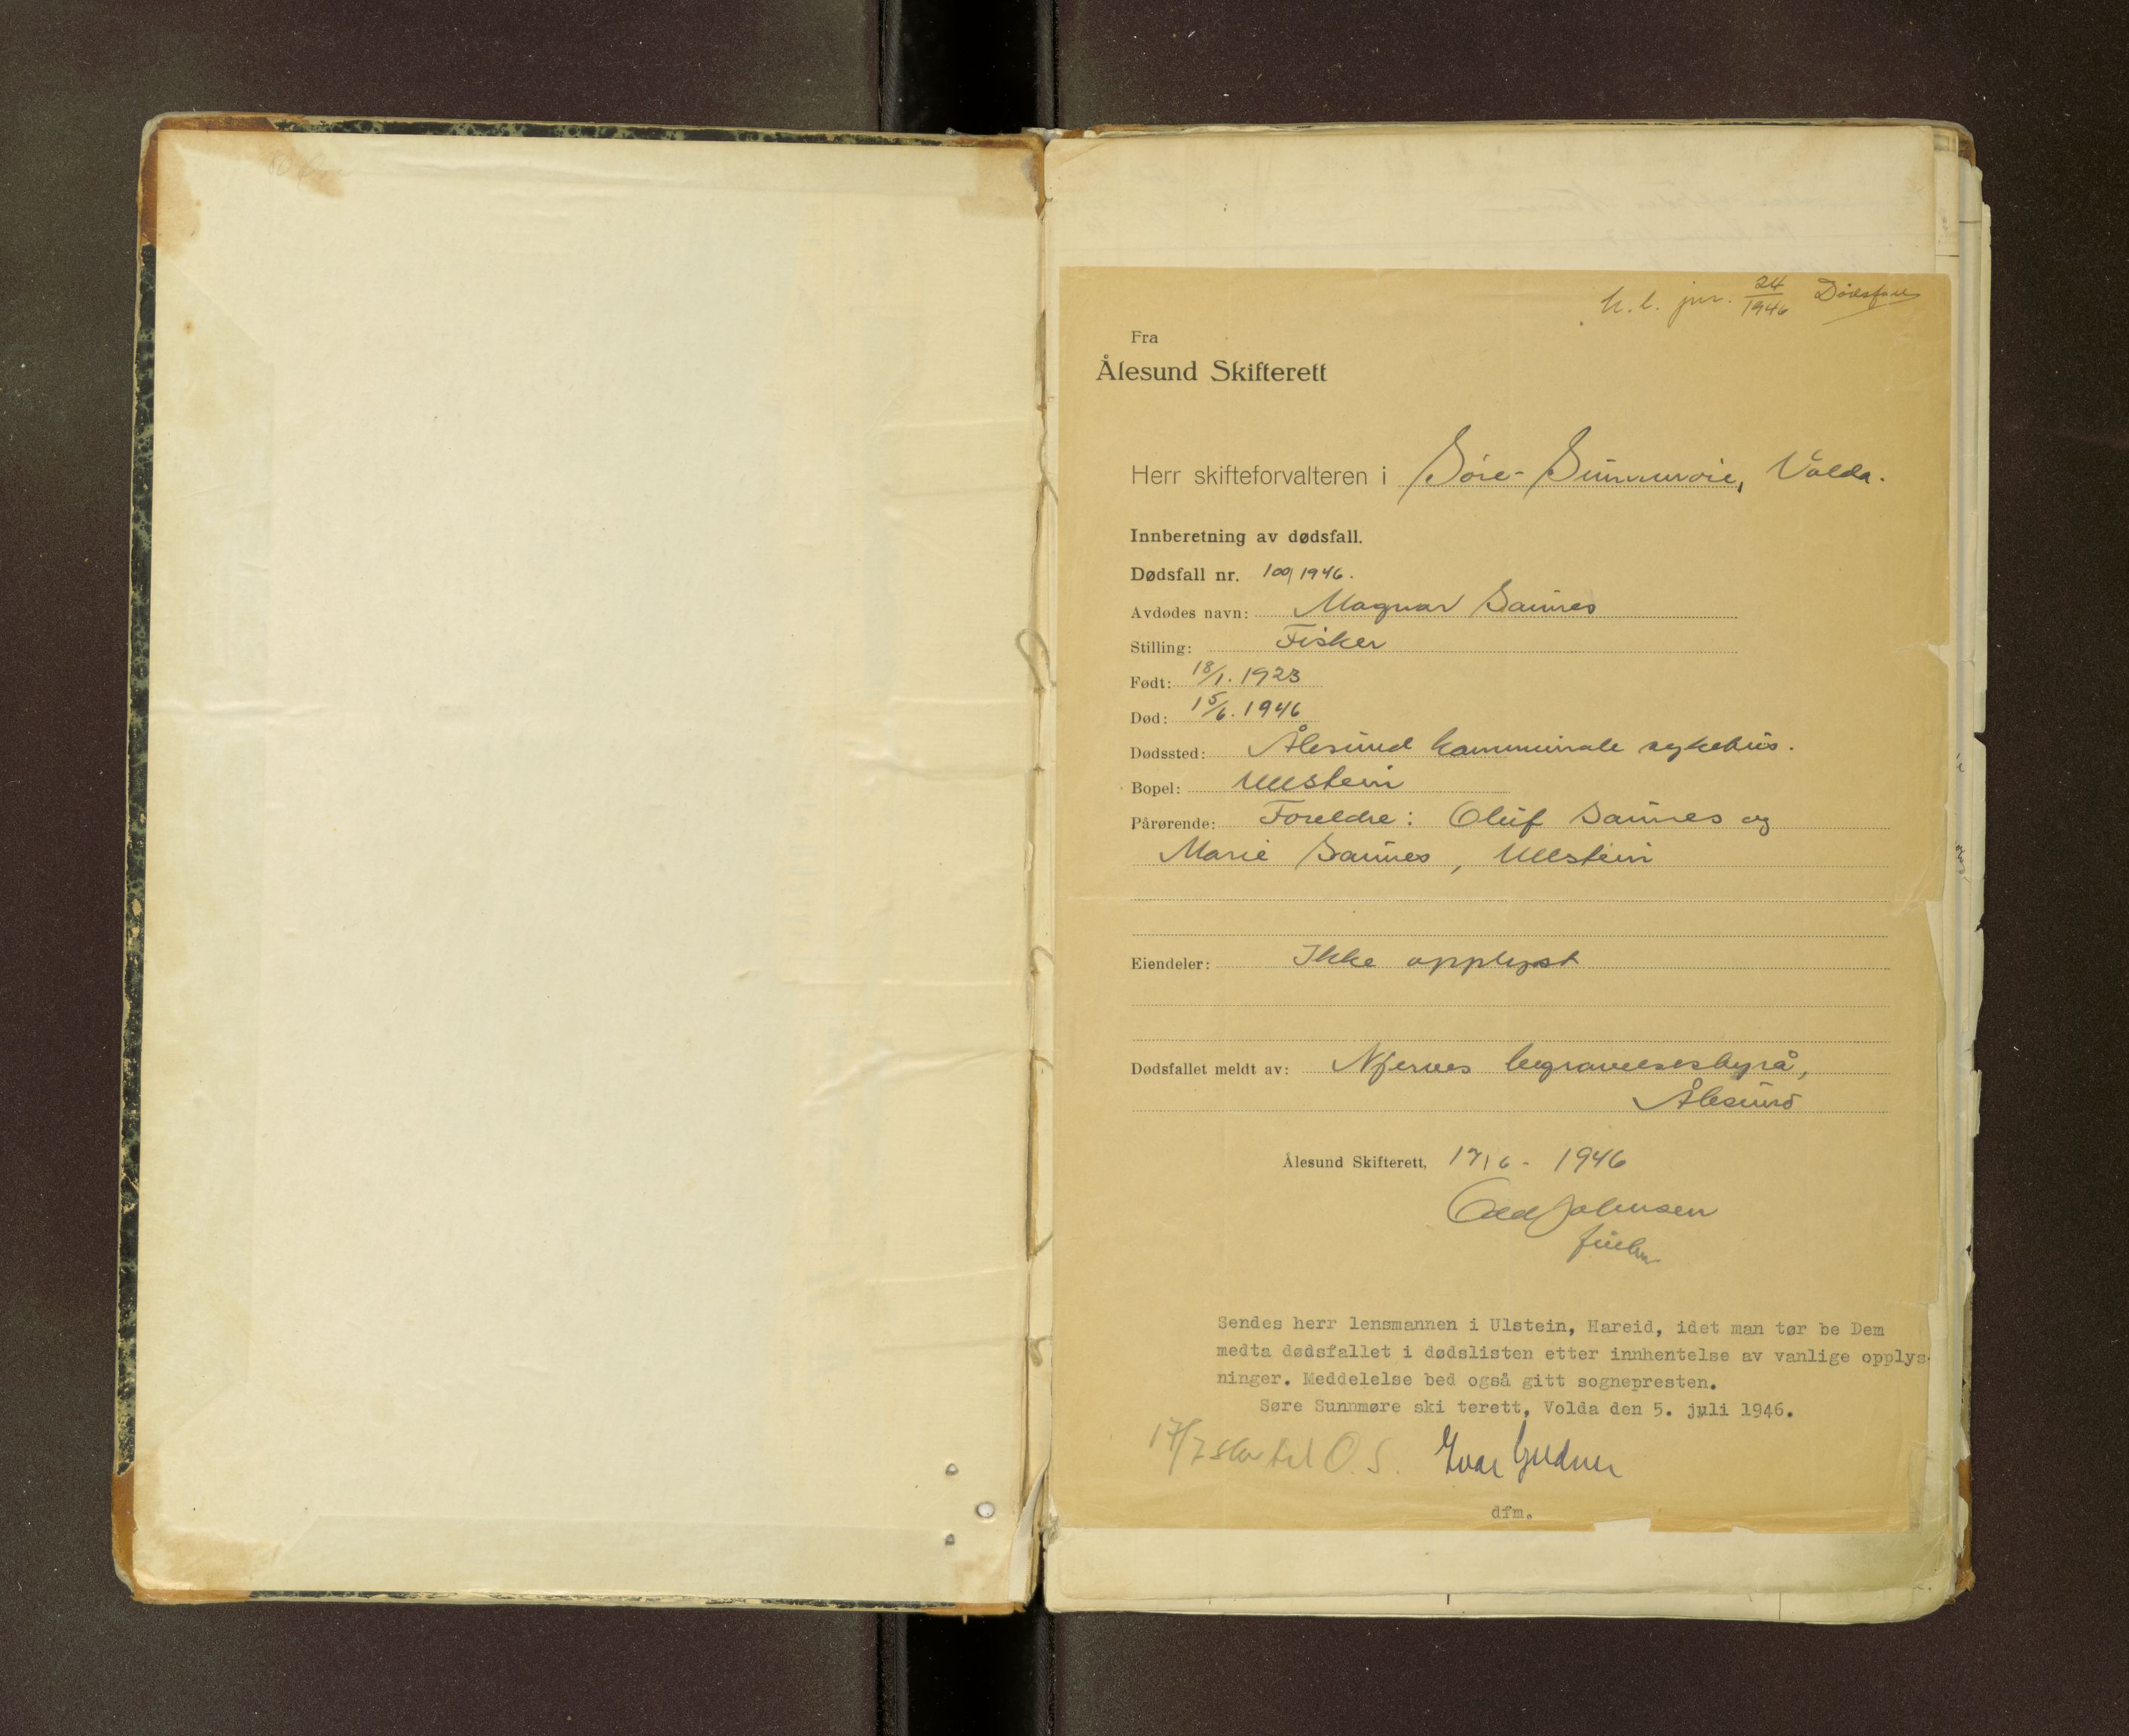 U. l. jnr. 24/1946 Dødsfall
Fra
Ålesund Skifterett
Herr skifteforvalteren i Søre-Sunnmøre, Volda.
Innberetning av dødsfall.
Dødsfall nr. 100/1946.
Avdødes navn: Magnar Saunes
Stilling: Fisker
Født: 18/1. 1923
Død: 15/6. 1946
Dødssted: Ålesund kommunale sykehus.
Bopel: Ullstein
Pårørende: Foreldre: Oluf Saunes og
Marie Saunes, Ullstein
Eiendeler: Ikke opplyst
Dødsfallet meldt av: Nferves begravelsesbyrå,
Ålesund
Ålesund Skifterett, 17/6 - 1946
Odd Johnsen
Sendes herr lensmannen i Ulstein, Hareid, idet man tør be Dem
medta dødsfallet i dødslisten etter innhentelse av vanlige opplys-
ninger. Meddelelse bed også gitt sognepresten.
Søre Sunnmøre ski terett, Volda den 5. juli 1946.
17/7 til O.S. Ivar
dfm.